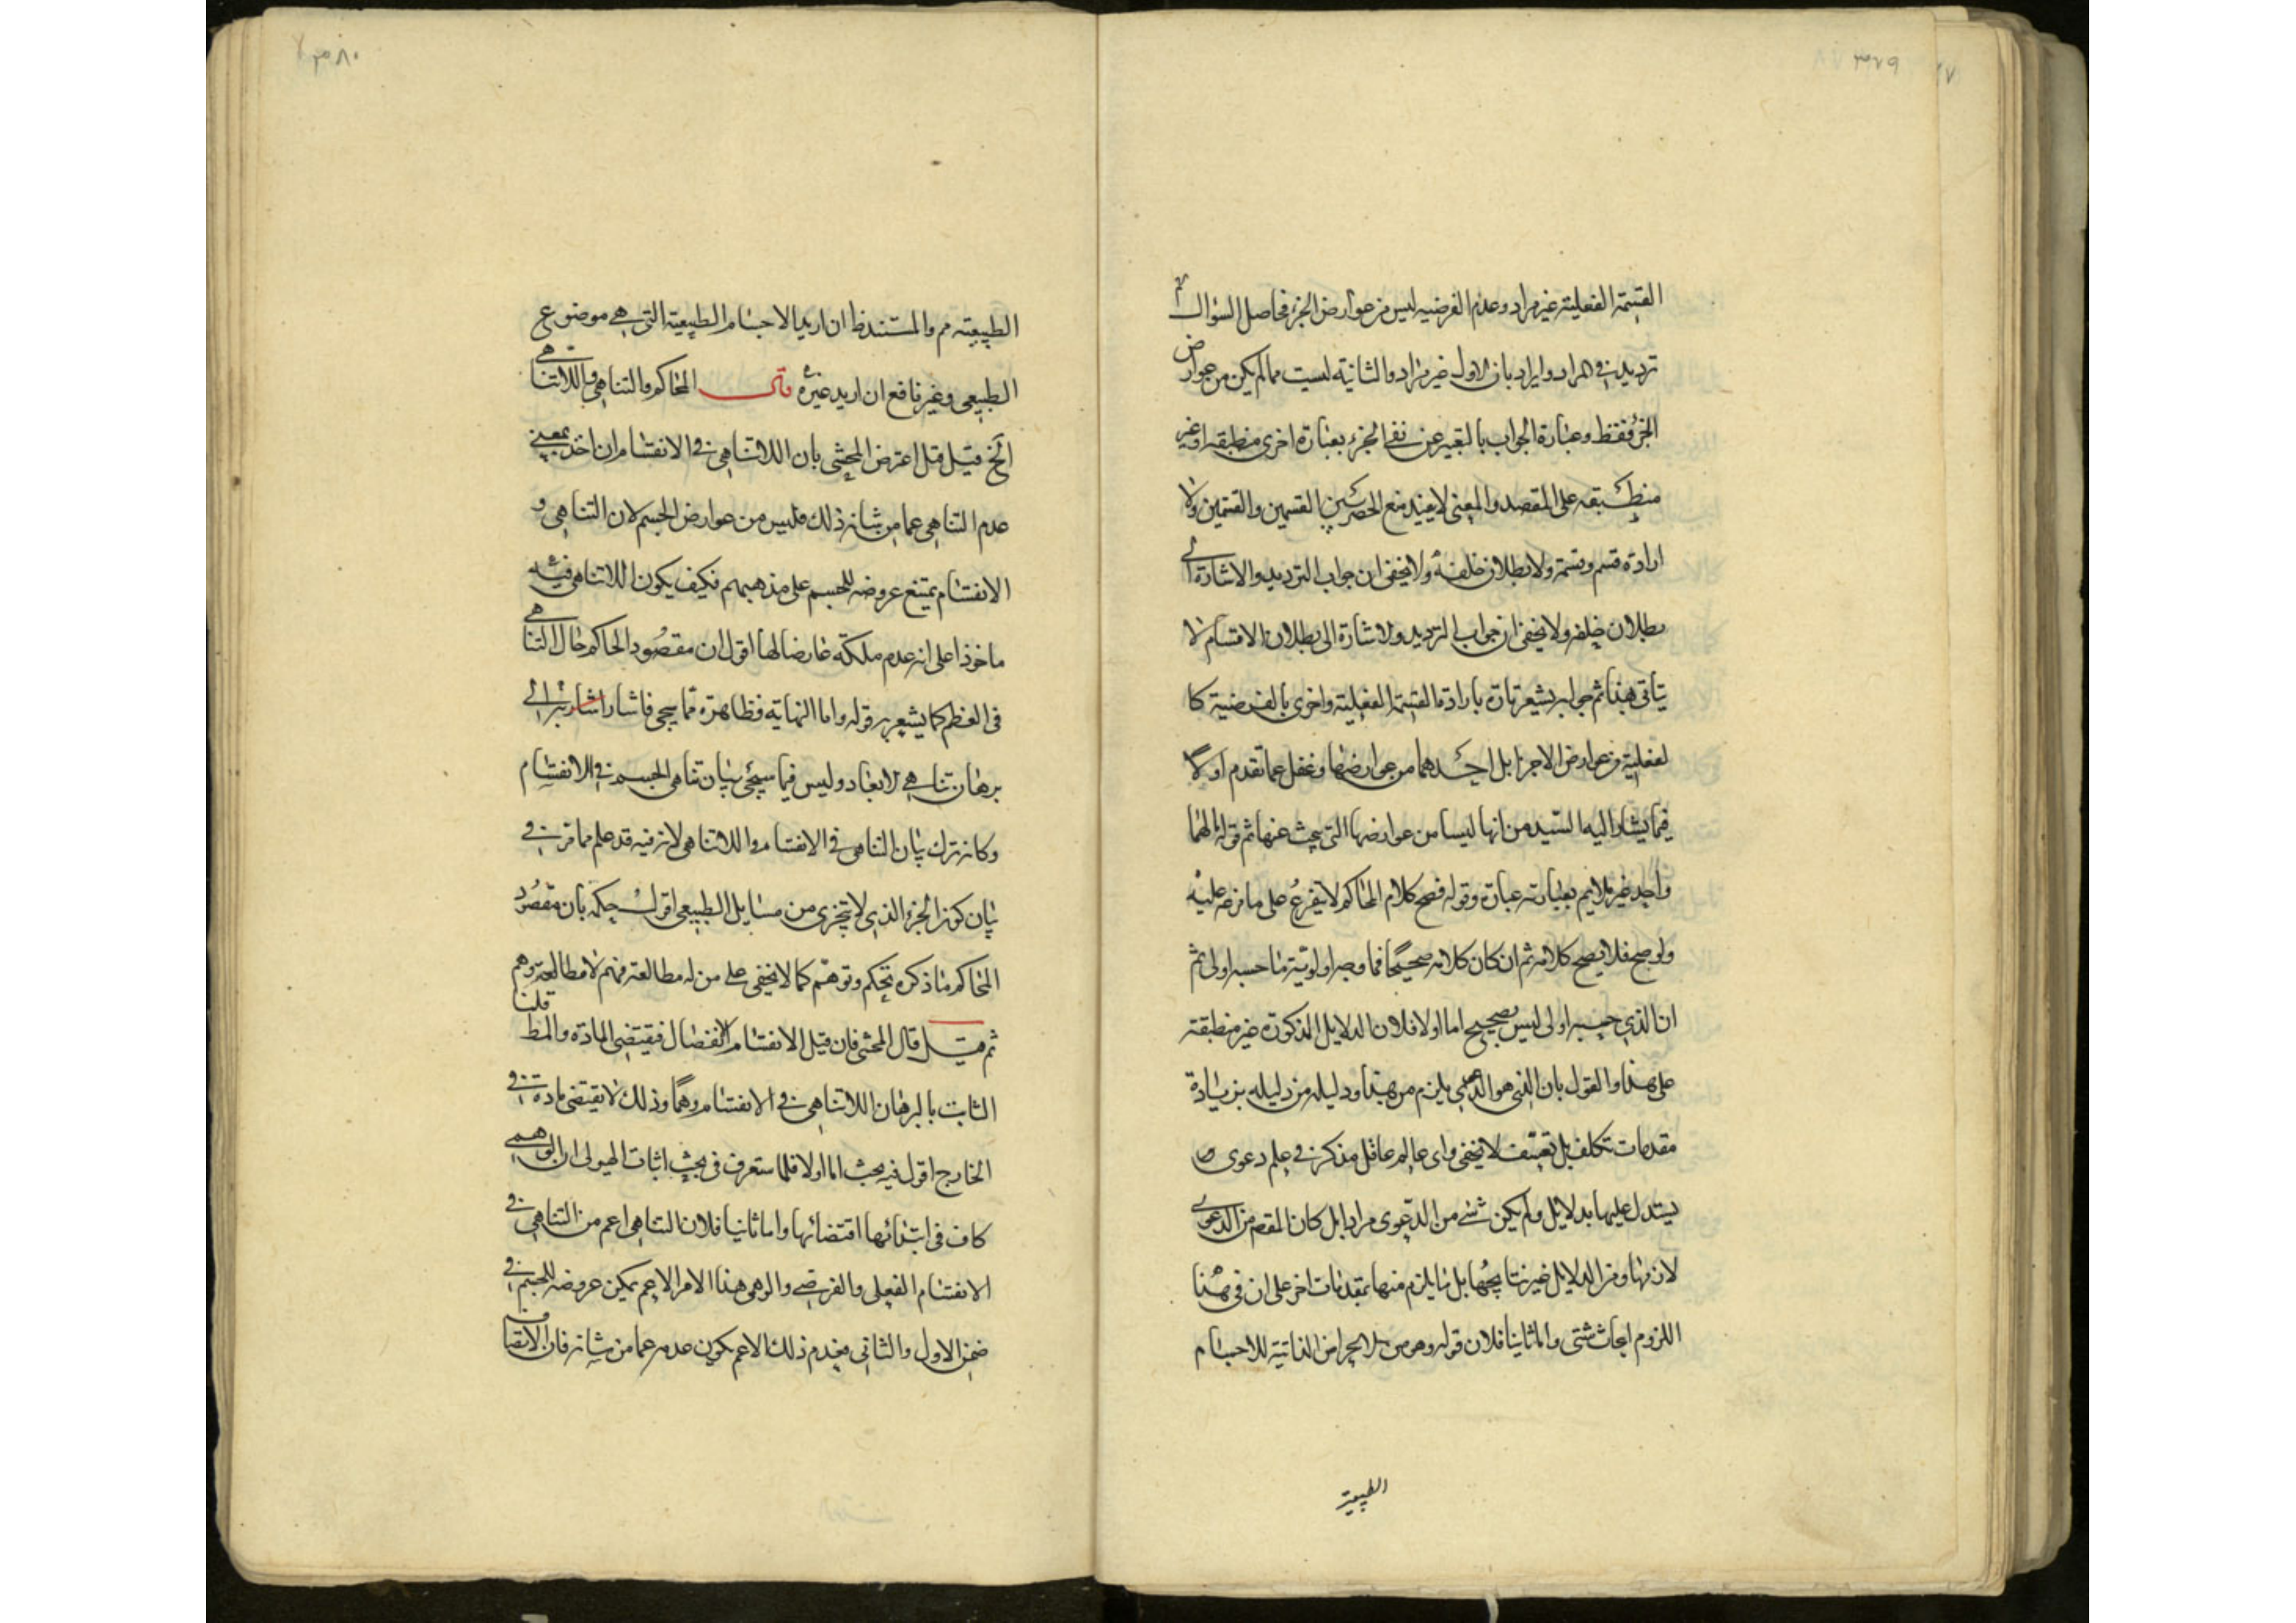 ٣٧٩
القسمة الفعلية غير مراد وعدم الفرضيه ليس من عوارض الجزء فحاصل السؤال
ترديد في المراد وايراد بان الاول غير مراد والثانية ليست مما لم يكن من عوارض
الجزء فقط وعبارة الجواب بالتعبير عن نفى الجزء بعبارة اخرى منطبقه او غير
منطبقه على المقصد والمعنى لا يفيد منع الحصر بين القسمين والقسمين ولا
ارادة قسم وقسمة ولا بطلان خلفه ولا يخفى ان جواب الترديد والاشارة الى
بطلان خلفه ولا يخفى ان جواب الترديد ولا شارة الى بطلان الاقسام لا
يتاتى هنا ثم جوابه يشعر تارة بارادة القسمة الفعلية واخرى بالفرضية كا
لفعلية من عوارض الاجزا بل احدهما من عوارضها وغفل عما تقدم اولا
فيما يشار اليه السيد من انها ليسا من عوارضها التي يبحث عنها ثم قوله
واحد غير ملايم بعبارته عبارة وقوله فصح كلام المحاكم لا يتفرع على ما فرعه عليه
ولو صح فلا يصح كلامه ثم ان كان كلامه صحيحا فما وجه اولوية ما حسبه اولى ثم
ان الذي حسبه اولى ليس بصحيح اما اولا فلان الدلايل المذكورة غير منطبقة
على هذا والقول بان النفى هو الدعوى يلزم من هذا ودليله من دليله بزيادة
مقدمات تكلف بل تعسف لا يخفى واى عالم عاقل مذكر في علم دعوى
يستدل عليها بدلايل ولم يكن شئ من الدعوى مرادا بل كان المقصد من الدعوى
لان منها ومن الدلايل غير نتايجها بل ما يلزم منها بمقدمات اخر على ان في هذا
اللزوم ابحاث شتى واما ثانيا فلان قوله وهو من الاعراض الذاتية للاجسام
الطبيعية
٣٨٠
الطبيعية مم والمستند ظ ان اريد الاجسام الطبيعية التي هي موضوع
الطبيعى وغير نافع ان اريد غيره قال المحاكم والتناهى واللاتناهى
الخ قيل قبل اعترض المحشى بان اللاتناهى في الانقسام ان اخذ بمعنى
عدم التناهى عما من شانه ذلك فليس من عوارض الجسم لان التناهى و
الانقسام يمتنع عروضه للجسم على مذهبهم فكيف يكون اللاتناهى فيه
ماخوذا على انه عدم ملكة عارضا لها اقول ان مقصود المحاكم حال التناهى
في العظم كما يشعر به قوله واما النهاية فظاهرة مما سيجي فاشار اشارة الى
برهان تناهى الابعاد وليس فيما سيجئ بيان تناهى الجسم في الانقسام
وكانه ترك بيان التناهى في الانقسام واللاتناهى لانه فيه قد علم مما مر في
بيان كون الجزء الذي لا يتجزى من مسايل الطبيعى اقول حكمه بان مقصود
المحاكم ما ذكره تحكم وتوهم كما لا يخفى على من له مطالعة فهم لا مطالعة وهم
ثم قيل قال المحشى فان قيل الانقسام الانفصال فيقتضى المادة والمط قلنا
الثابت بالبرهان اللاتناهى في الانقسام وهما وذلك لا يقتضى مادة في
الخارج اقول فيه بحث اما اولا فلما ستعرف في بحث اثبات الهيولى ان الوهمى
كاف في ابتنائها اقتضائها واما ثانيا فلان التناهى اعم من التناهى في
الانقسام الفعلى والفرضى والوهمى هذا الامر الاعم يمكن عروضه للجسم في
ضمن الاول والثانى فعدم ذلك الاعم يكون عدمه عما من شانه فان الانقسام